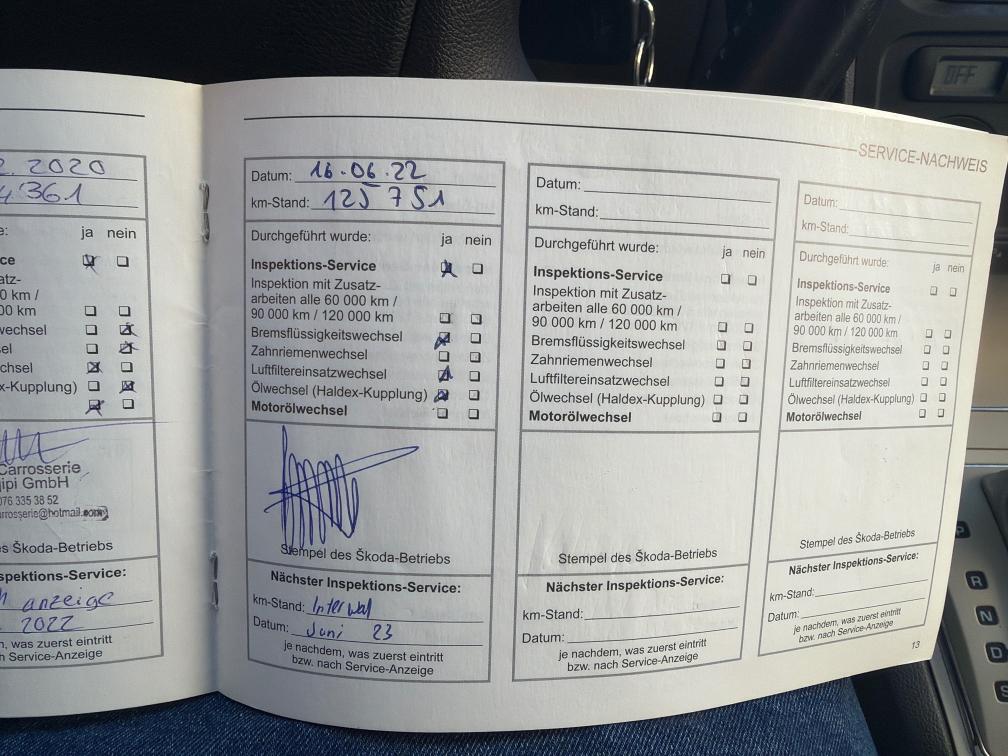 OFF
SERVICE-NACHWEIS
2. 2020
4'361
e: ja nein
ce
atz-
0 km /
00 km
wechsel
sel
chsel
x-Kupplung)
Carrosserie
jipi GmbH
076 335 38 52
arrosserie@hotmail.com
es Škoda-Betriebs
spektions-Service:
anzeige
2022
n, was zuerst eintritt
ach Service-Anzeige
Datum: 16.06.22
km-Stand: 125 751
Durchgeführt wurde: ja nein
Inspektions-Service
Inspektion mit Zusatz-
arbeiten alle 60 000 km /
90 000 km / 120 000 km
Bremsflüssigkeitswechsel
Zahnriemenwechsel
Luftfiltereinsatzwechsel
Ölwechsel (Haldex-Kupplung)
Motorölwechsel
Stempel des Škoda-Betriebs
Nächster Inspektions-Service:
km-Stand: Interwal
Datum: Juni 23
je nachdem, was zuerst eintritt
bzw. nach Service-Anzeige
Datum:
km-Stand:
Durchgeführt wurde: ja nein
Inspektions-Service
Inspektion mit Zusatz-
arbeiten alle 60 000 km /
90 000 km / 120 000 km
Bremsflüssigkeitswechsel
Zahnriemenwechsel
Luftfiltereinsatzwechsel
Ölwechsel (Haldex-Kupplung)
Motorölwechsel
Stempel des Škoda-Betriebs
Nächster Inspektions-Service:
km-Stand:
Datum:
je nachdem, was zuerst eintritt
bzw. nach Service-Anzeige
Datum:
km-Stand:
Durchgeführt wurde: ja nein
Inspektions-Service
Inspektion mit Zusatz-
arbeiten alle 60 000 km /
90 000 km / 120 000 km
Bremsflüssigkeitswechsel
Zahnriemenwechsel
Luftfiltereinsatzwechsel
Ölwechsel (Haldex-Kupplung)
Motorölwechsel
Stempel des Škoda-Betriebs
Nächster Inspektions-Service:
km-Stand:
Datum:
je nachdem, was zuerst eintritt
bzw. nach Service-Anzeige
13
P
R
N
D
S